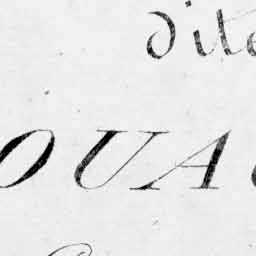 dite
OUA